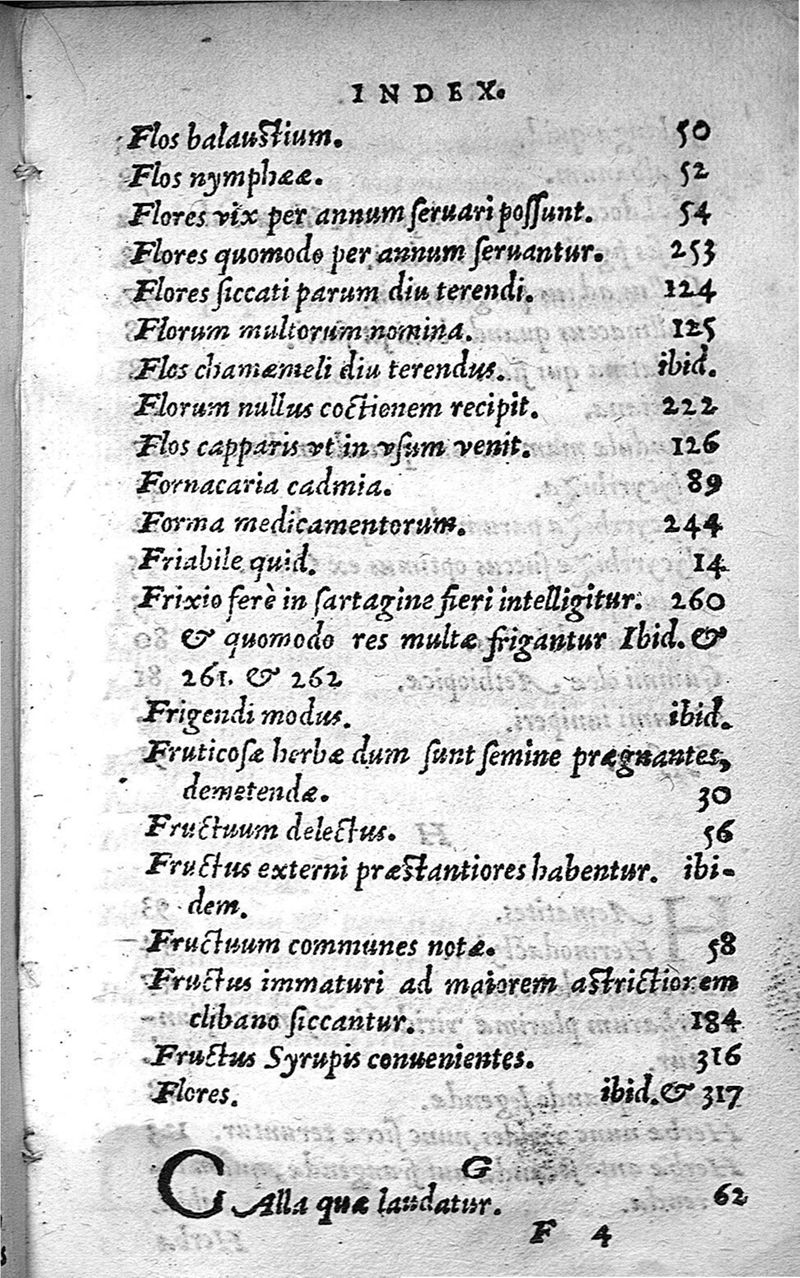 INDEX.
Flos balaustium. 50
Flos nymphææ. 52
Flores vix per annum seruari possunt. 54
Flores quomodo per annum seruantur. 253
Flores siccati parum diu terendi. 124
Florum multorum nomina. 125
Flos chamæmeli diu terendus. ibid.
Florum nullus coctionem recipit. 222
Flos capparis vt in vsum venit. 126
Fornacaria cadmia. 89
Forma medicamentorum. 244
Friabile quid. 14
Frixio ferè in sartagine fieri intelligitur. 260
& quomodo res multæ frigantur Ibid. &
261. & 262
Frigendi modus. ibid.
Fruticosæ herbæ dum sunt semine prægnantes,
demetendæ. 30
Fructuum delectus. 56
Fructus externi præstantiores habentur. ibi-
dem.
Fructuum communes notæ. 58
Fructus immaturi ad maiorem astrictionem
clibano siccantur. 184
Fructus Syrupis conuenientes. 316
Flores. ibid. & 317
G
GAlla quæ laudatur. 62
F 4